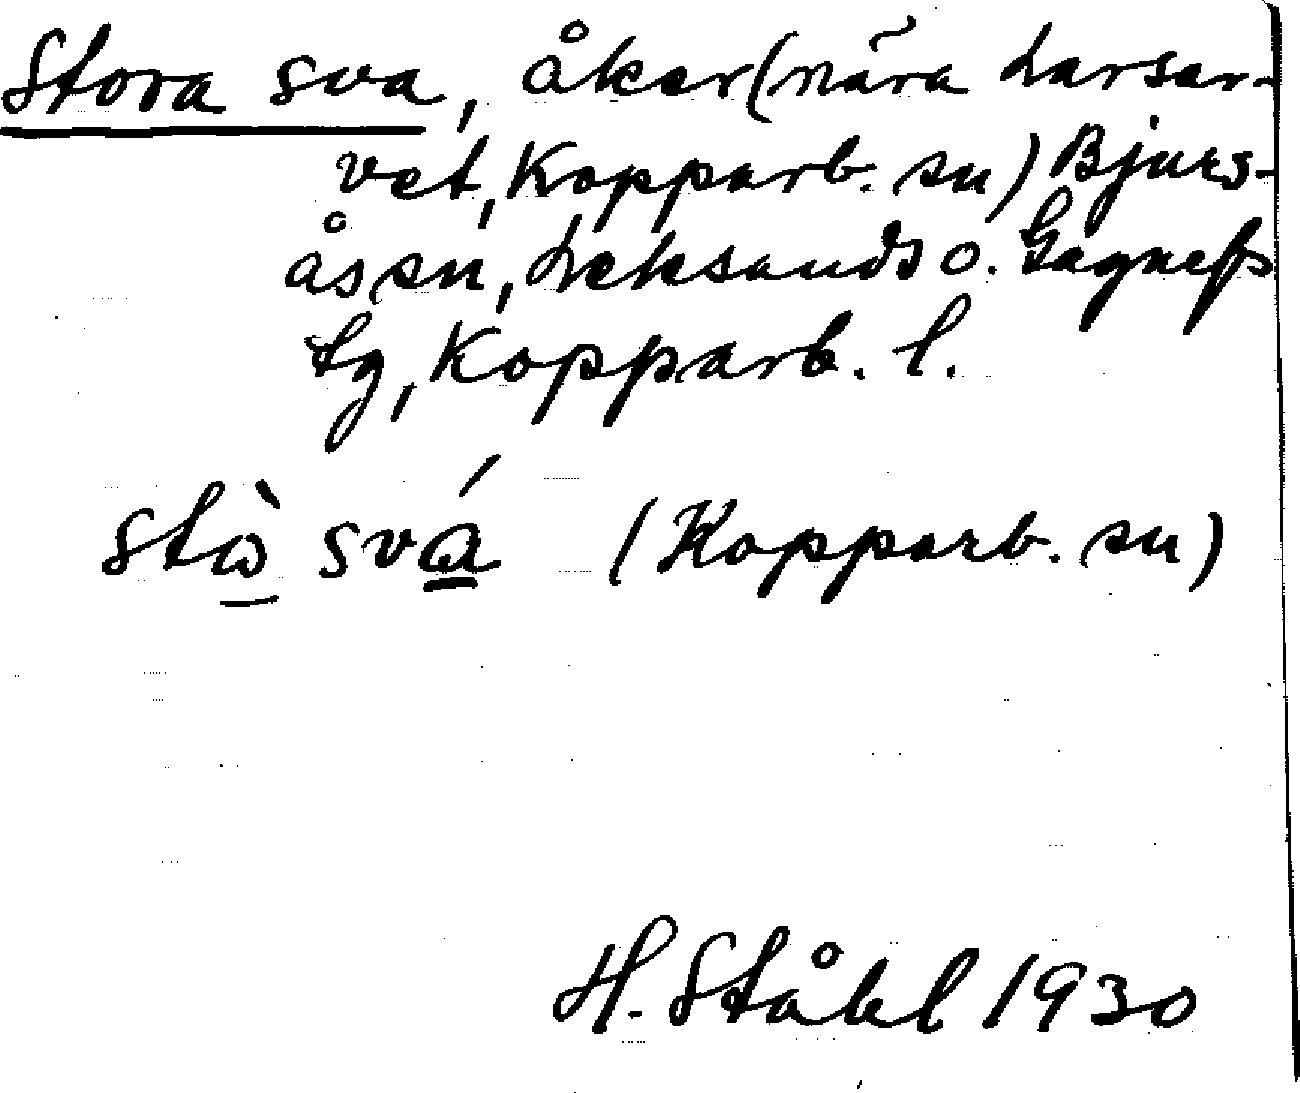 Stora sva, åker (nära Larsar-
vet, Kopparb. sn) Bjurs-
ås sn, Leksands o. Gagnefs
tg, Kopparb. l.
stὼ svá (Kopparb. sn)
H. Ståhl 1930